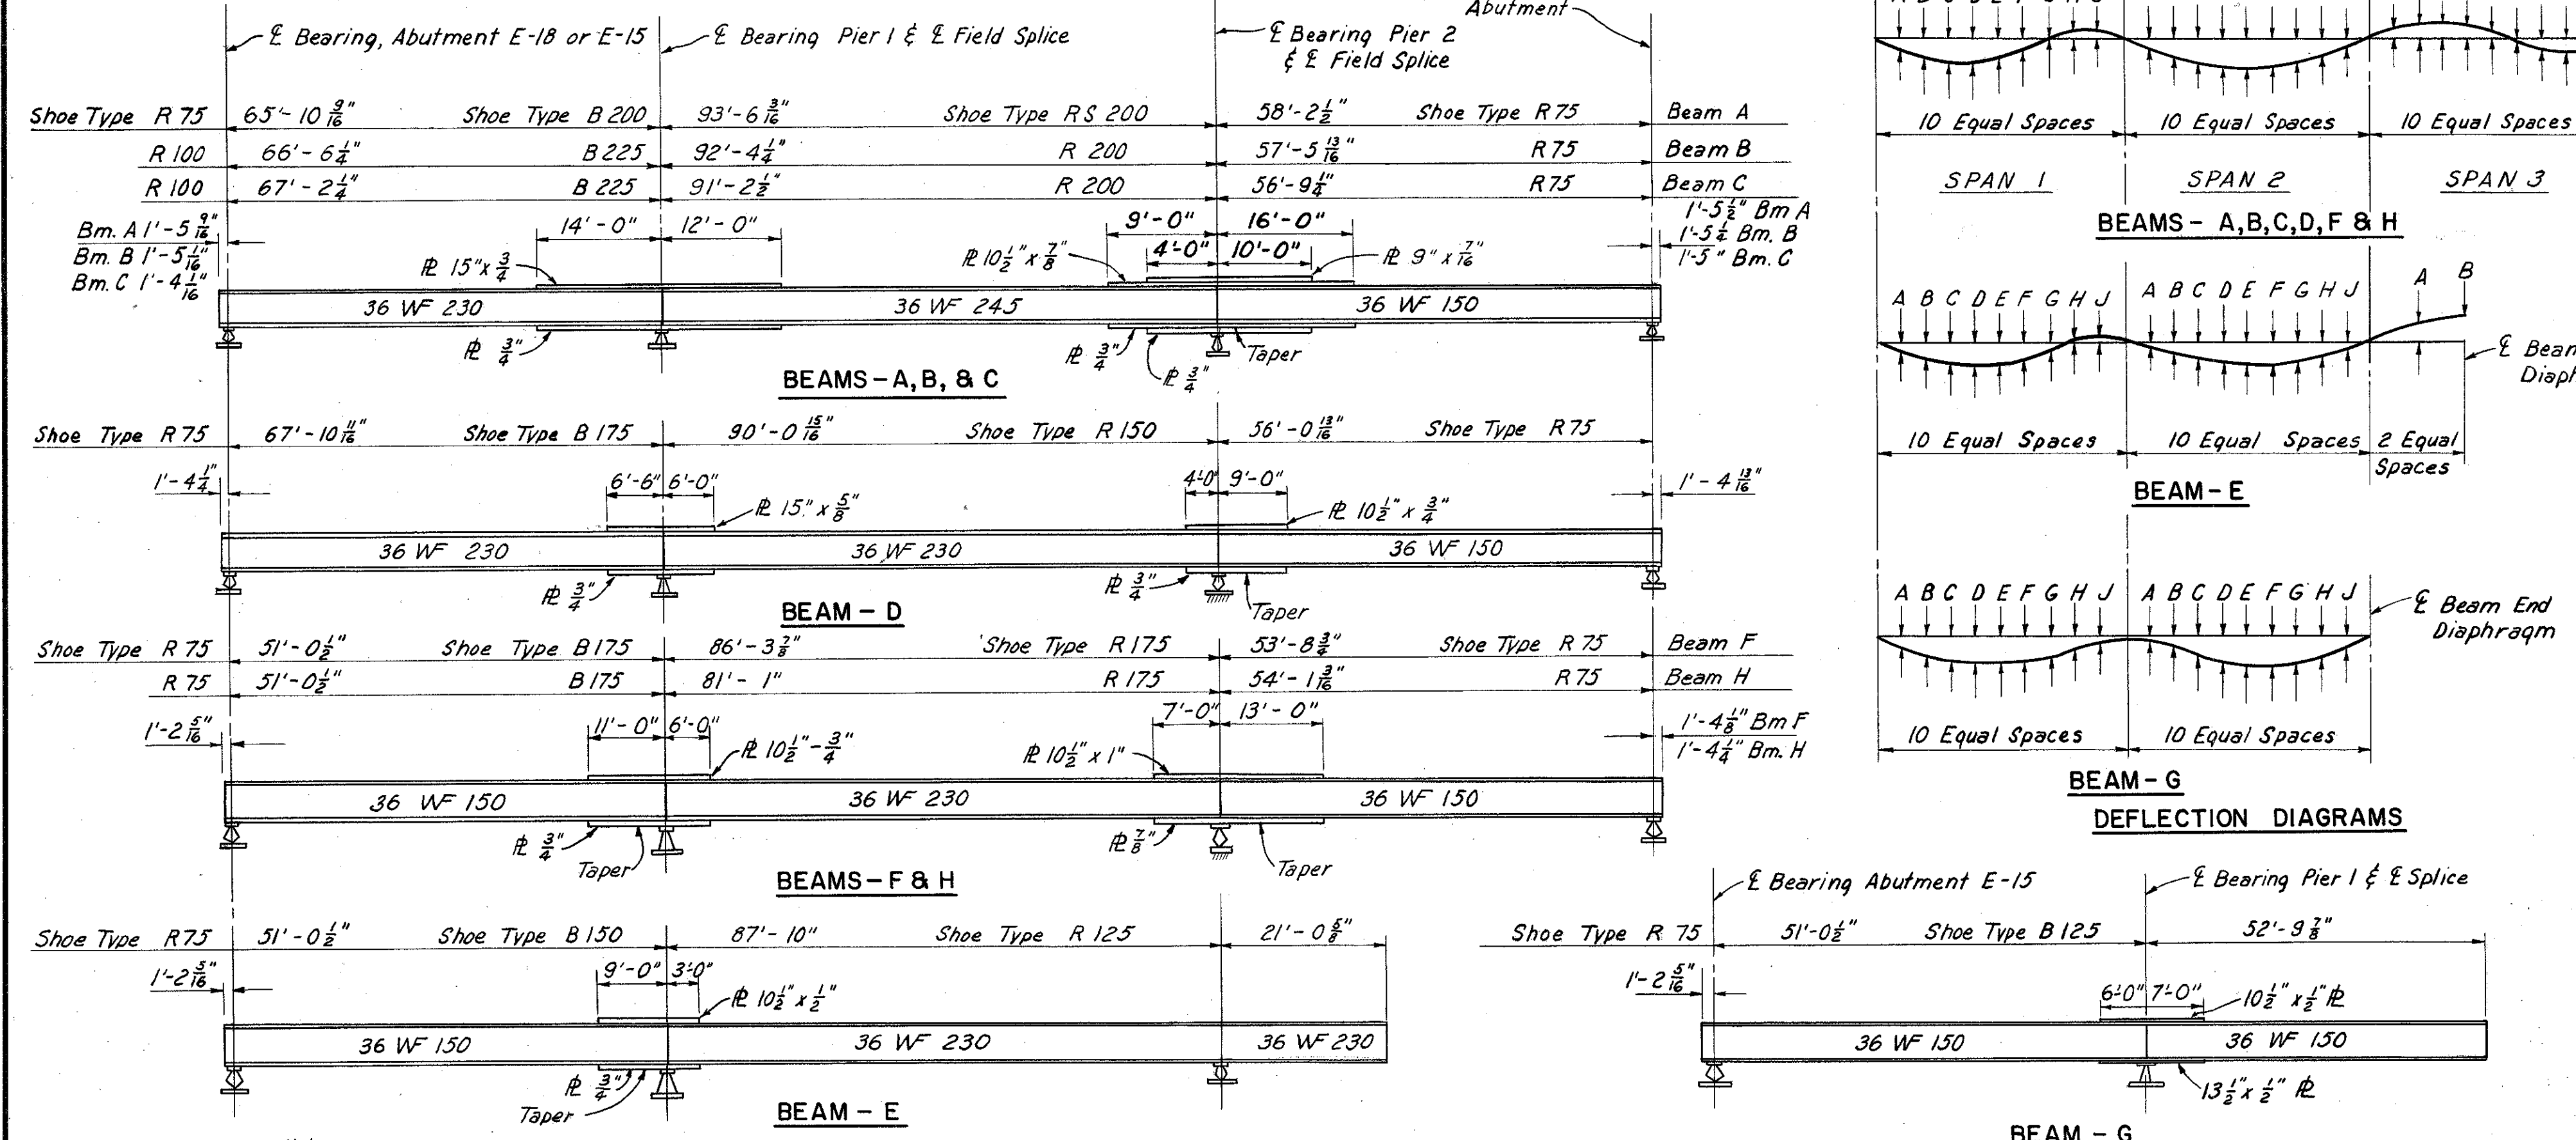 ℄ Bearing, Abutment E-18 or E-15
℄ Bearing Pier 1 & ℄ Field Splice
℄ Bearing Pier 2
& ℄ Field Splice
Abutment
Shoe Type R 75 65'-10 9/16" Shoe Type B 200 93'-6 3/16" Shoe Type RS 200 58'-2 1/2" Shoe Type R 75 Beam A
R 100 66'-6 1/4" B 225 92'-4 1/4" R 200 57'-5 13/16" R 75 Beam B
R 100 67'-2 1/4" B 225 91'-2 1/2" R 200 56'-9 1/4" R 75 Beam C
Bm. A 1'-5 9/16"
Bm. B 1'-5 1/16"
Bm. C 1'-4 1/16"
14'-0" 12'-0"
9'-0" 16'-0"
4'-0" 10'-0"
1'-5 1/2" Bm A
1'-5 1/4 Bm. B
1'-5" Bm. C
℄ 15" x 3/4
℄ 10 1/2" x 7/8"
℄ 9" x 7/16"
36 WF 230 36 WF 245 36 WF 150
℄ 3/4"
℄ 3/4"
℄ 3/4"
Taper
BEAMS - A, B, & C
Shoe Type R 75 67'-10 11/16" Shoe Type B 175 90'-0 15/16" Shoe Type R 150 56'-0 13/16" Shoe Type R 75
1'-4 1/4"
6'-6" 6'-0"
4'-0" 9'-0"
1'-4 13/16"
℄ 15" x 5/8"
℄ 10 1/2" x 3/4"
36 WF 230 36 WF 230 36 WF 150
℄ 3/4"
℄ 3/4"
Taper
BEAM - D
Shoe Type R 75 51'-0 1/2" Shoe Type B 175 86'-3 7/8" Shoe Type R 175 53'-8 3/4" Shoe Type R 75 Beam F
R 75 51'-0 1/2" B 175 81'-1" R 175 54'-1 3/16" R 75 Beam H
1'-2 5/16"
11'-0" 6'-0"
7'-0" 13'-0"
1'-4 1/8" Bm F
1'-4 1/4" Bm. H
℄ 10 1/2" - 3/4"
℄ 10 1/2" x 1"
36 WF 150 36 WF 230 36 WF 150
℄ 3/4"
Taper
℄ 7/8"
Taper
BEAMS - F & H
Shoe Type R 75 51'-0 1/2" Shoe Type B 150 87'-10" Shoe Type R 125 21'-0 5/8"
1'-2 5/16"
9'-0" 3'-0"
℄ 10 1/2" x 1/2"
36 WF 150 36 WF 230 36 WF 230
℄ 3/4"
Taper
BEAM - E
10 Equal Spaces 10 Equal Spaces 10 Equal Spaces
SPAN 1 SPAN 2 SPAN 3
BEAMS - A, B, C, D, F & H
A B C D E F G H J A B C D E F G H J A B
℄ Bean
Diaph
10 Equal Spaces 10 Equal Spaces 2 Equal
Spaces
BEAM - E
A B C D E F G H J A B C D E F G H J
℄ Beam End
Diaphragm
10 Equal Spaces 10 Equal Spaces
BEAM - G
DEFLECTION DIAGRAMS
℄ Bearing Abutment E-15
℄ Bearing Pier 1 & ℄ Splice
Shoe Type R 75 51'-0 1/2" Shoe Type B 125 52'-9 7/8"
1'-2 5/16"
6'-0" 7'-0"
10 1/2" x 1/2" ℄
36 WF 150 36 WF 150
13 1/2" x 1/2" ℄
BEAM - G